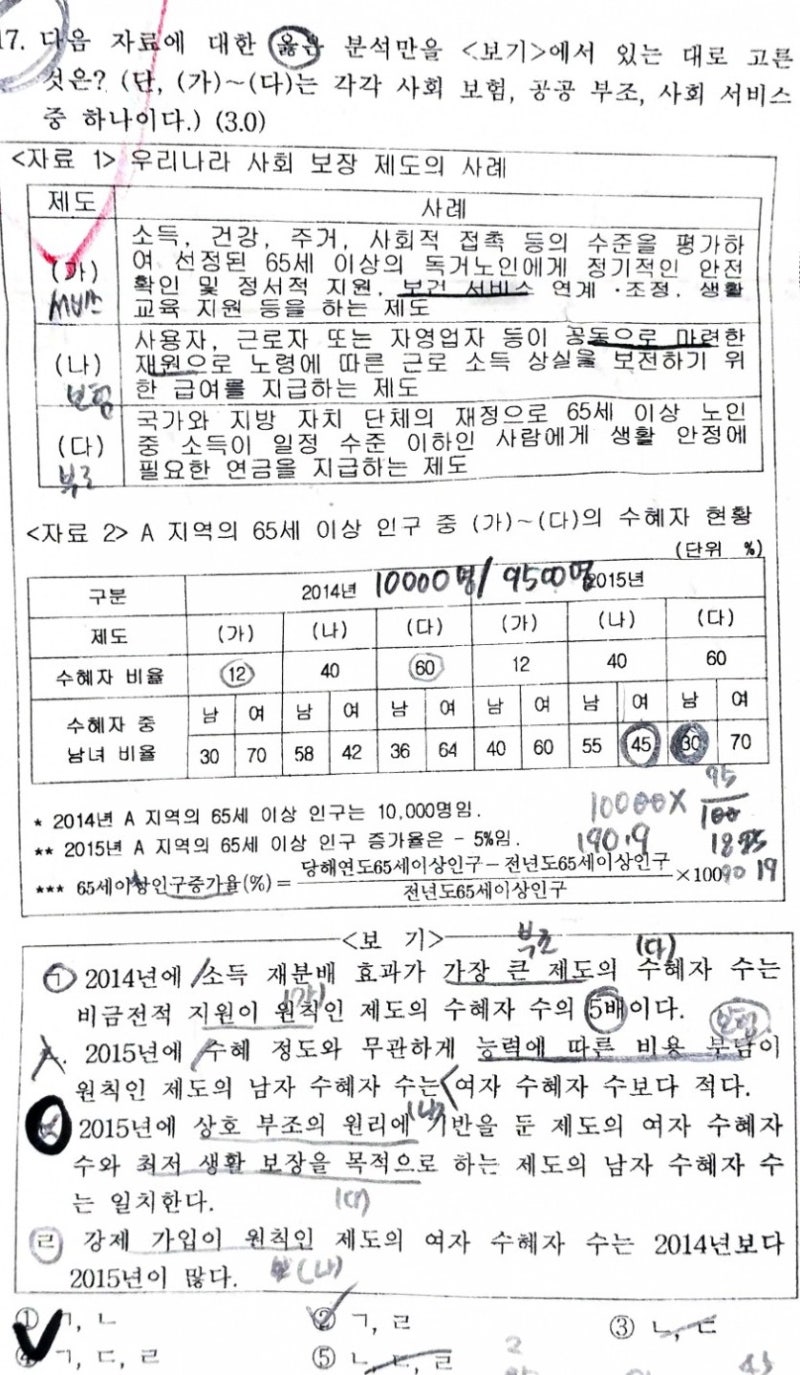 17. 다음 자료에 대한 옳은 분석만을 <보기>에서 있는 대로 고른
것은? (단, (가)~(다)는 각각 사회 보험, 공공 부조, 사회 서비스
중 하나이다.) (3.0)
<자료 1> 우리나라 사회 보장 제도의 사례
제도 사례
(가) 서비스
소득, 건강, 주거, 사회적 접촉 등의 수준을 평가하
여 선정된 65세 이상의 독거노인에게 정기적인 안전
확인 및 정서적 지원, 보건 서비스 연계·조정, 생활
교육 지원 등을 하는 제도
(나) 보험
사용자, 근로자 또는 자영업자 등이 공동으로 마련한
재원으로 노령에 따른 근로 소득 상실을 보전하기 위
한 급여를 지급하는 제도
(다) 부조
국가와 지방 자치 단체의 재정으로 65세 이상 노인
중 소득이 일정 수준 이하인 사람에게 생활 안정에
필요한 연금을 지급하는 제도
<자료 2> A 지역의 65세 이상 인구 중 (가)~(다)의 수혜자 현황
(단위 %)
구분 2014년 10000명/ 9500명 2015년
제도 (가) (나) (다) (가) (나) (다)
수혜자 비율 12 40 60 12 40 60
수혜자 중 남 여 남 여 남 여 남 여 남 여 남 여
남녀 비율 30 70 58 42 36 64 40 60 55 45 30 70
* 2014년 A 지역의 65세 이상 인구는 10,000명임.
10000× 95/100
** 2015년 A 지역의 65세 이상 인구 증가율은 - 5%임.
190.9
*** 65세이상인구증가율(%)= 당해연도65세이상인구-전년도65세이상인구 / 전년도65세이상인구 ×100
90 19
<보 기>
부조 (다)
ㄱ 2014년에 소득 재분배 효과가 가장 큰 제도의 수혜자 수는
비금전적 지원이 원칙인 제도의 수혜자 수의 5배이다.
(가) 보험
ㄴ. 2015년에 수혜 정도와 무관하게 능력에 따른 비용 부담이
원칙인 제도의 남자 수혜자 수는 여자 수혜자 수보다 적다.
(나)
2015년에 상호 부조의 원리에 기반을 둔 제도의 여자 수혜자
수와 최저 생활 보장을 목적으로 하는 제도의 남자 수혜자 수
는 일치한다.
(다)
ㄹ 강제 가입이 원칙인 제도의 여자 수혜자 수는 2014년보다
2015년이 많다.
(나)
① ㄱ, ㄴ ② ㄱ, ㄹ ③ ㄴ, ㄷ
④ ㄱ, ㄷ, ㄹ ⑤ ㄴ, ㄷ, ㄹ
2